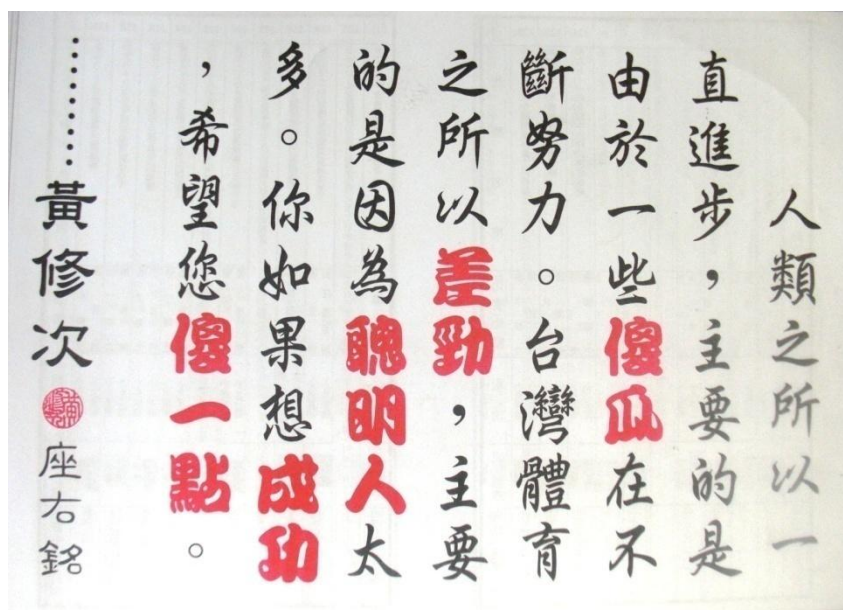 人類之所以一
直進步，主要的是
由於一些傻瓜在不
斷努力。台灣體育
之所以差勁，主要
的是因為聰明人太
多。你如果想成功
，希望您傻一點。
………黃修次 座右銘